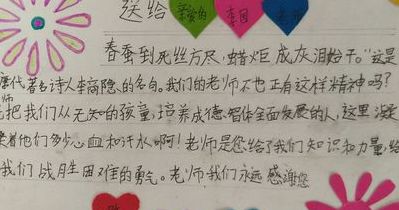 送给 亲爱的 老师
春蚕到死丝方尽,蜡炬成灰泪始干。"这是
唐代著名诗人李商隐的名句。我们的老师不也正有这样精神吗?
师
把我们从无知的孩童,培养成德智体全面发展的人,这里凝
着他们多少心血和汗水啊!老师是您给了我们知识和力量,给
我们战胜困难的勇气。老师,我们永远感谢您